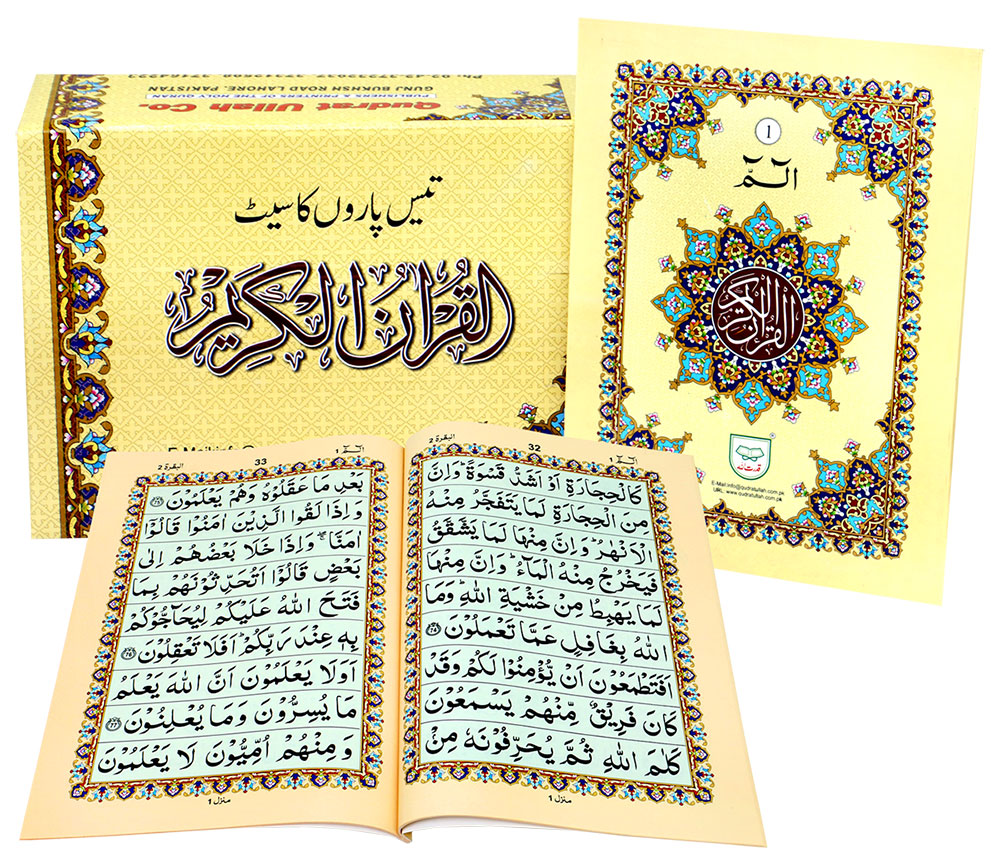 Qudrat Ullah Co.
PUBLISHERS & PRINTERS OF THE HOLY QURAN
GUNJ BUKHSH ROAD LAHORE, PAKISTAN
تیس پاروں کا سیٹ
القرآن الکریم
1
الٓـمّٓ
القرآن الکریم
قدرت اللہ
E-Mail:info@qudratullah.com.pk
URL: www.qudratullah.com.pk
البقرة 2
32
الٓمّٓ 1
كَالْحِجَارَةِ اَوْ اَشَدُّ قَسْوَةً ؕ وَاِنَّ
مِنَ الْحِجَارَةِ لَمَا يَتَفَجَّرُ مِنْهُ
الْاَنْهٰرُ ؕ وَاِنَّ مِنْهَا لَمَا يَشَّقَّقُ
فَيَخْرُجُ مِنْهُ الْمَآءُ ؕ وَاِنَّ مِنْهَا
لَمَا يَهْبِطُ مِنْ خَشْيَةِ اللّٰهِ ؕ وَمَا
اللّٰهُ بِغَافِلٍ عَمَّا تَعْمَلُوْنَ ﴿۷۴﴾
اَفَتَطْمَعُوْنَ اَنْ يُّؤْمِنُوْا لَكُمْ وَقَدْ
كَانَ فَرِيْقٌ مِّنْهُمْ يَسْمَعُوْنَ
كَلٰمَ اللّٰهِ ثُمَّ يُحَرِّفُوْنَهٗ مِنْۢ
منزل ۱
البقرة 2
33
الٓمّٓ 1
بَعْدِ مَا عَقَلُوْهُ وَهُمْ يَعْلَمُوْنَ ﴿۷۵﴾
وَاِذَا لَقُوا الَّذِيْنَ اٰمَنُوْا قَالُوْۤا
اٰمَنَّا ۖ وَاِذَا خَلَا بَعْضُهُمْ اِلٰى
بَعْضٍ قَالُوْۤا اَتُحَدِّثُوْنَهُمْ بِمَا
فَتَحَ اللّٰهُ عَلَيْكُمْ لِيُحَآجُّوْكُمْ
بِهٖ عِنْدَ رَبِّكُمْ ؕ اَفَلَا تَعْقِلُوْنَ ﴿۷۶﴾
اَوَلَا يَعْلَمُوْنَ اَنَّ اللّٰهَ يَعْلَمُ
مَا يُسِرُّوْنَ وَمَا يُعْلِنُوْنَ ﴿۷۷﴾
وَمِنْهُمْ اُمِّيُّوْنَ لَا يَعْلَمُوْنَ
منزل ۱